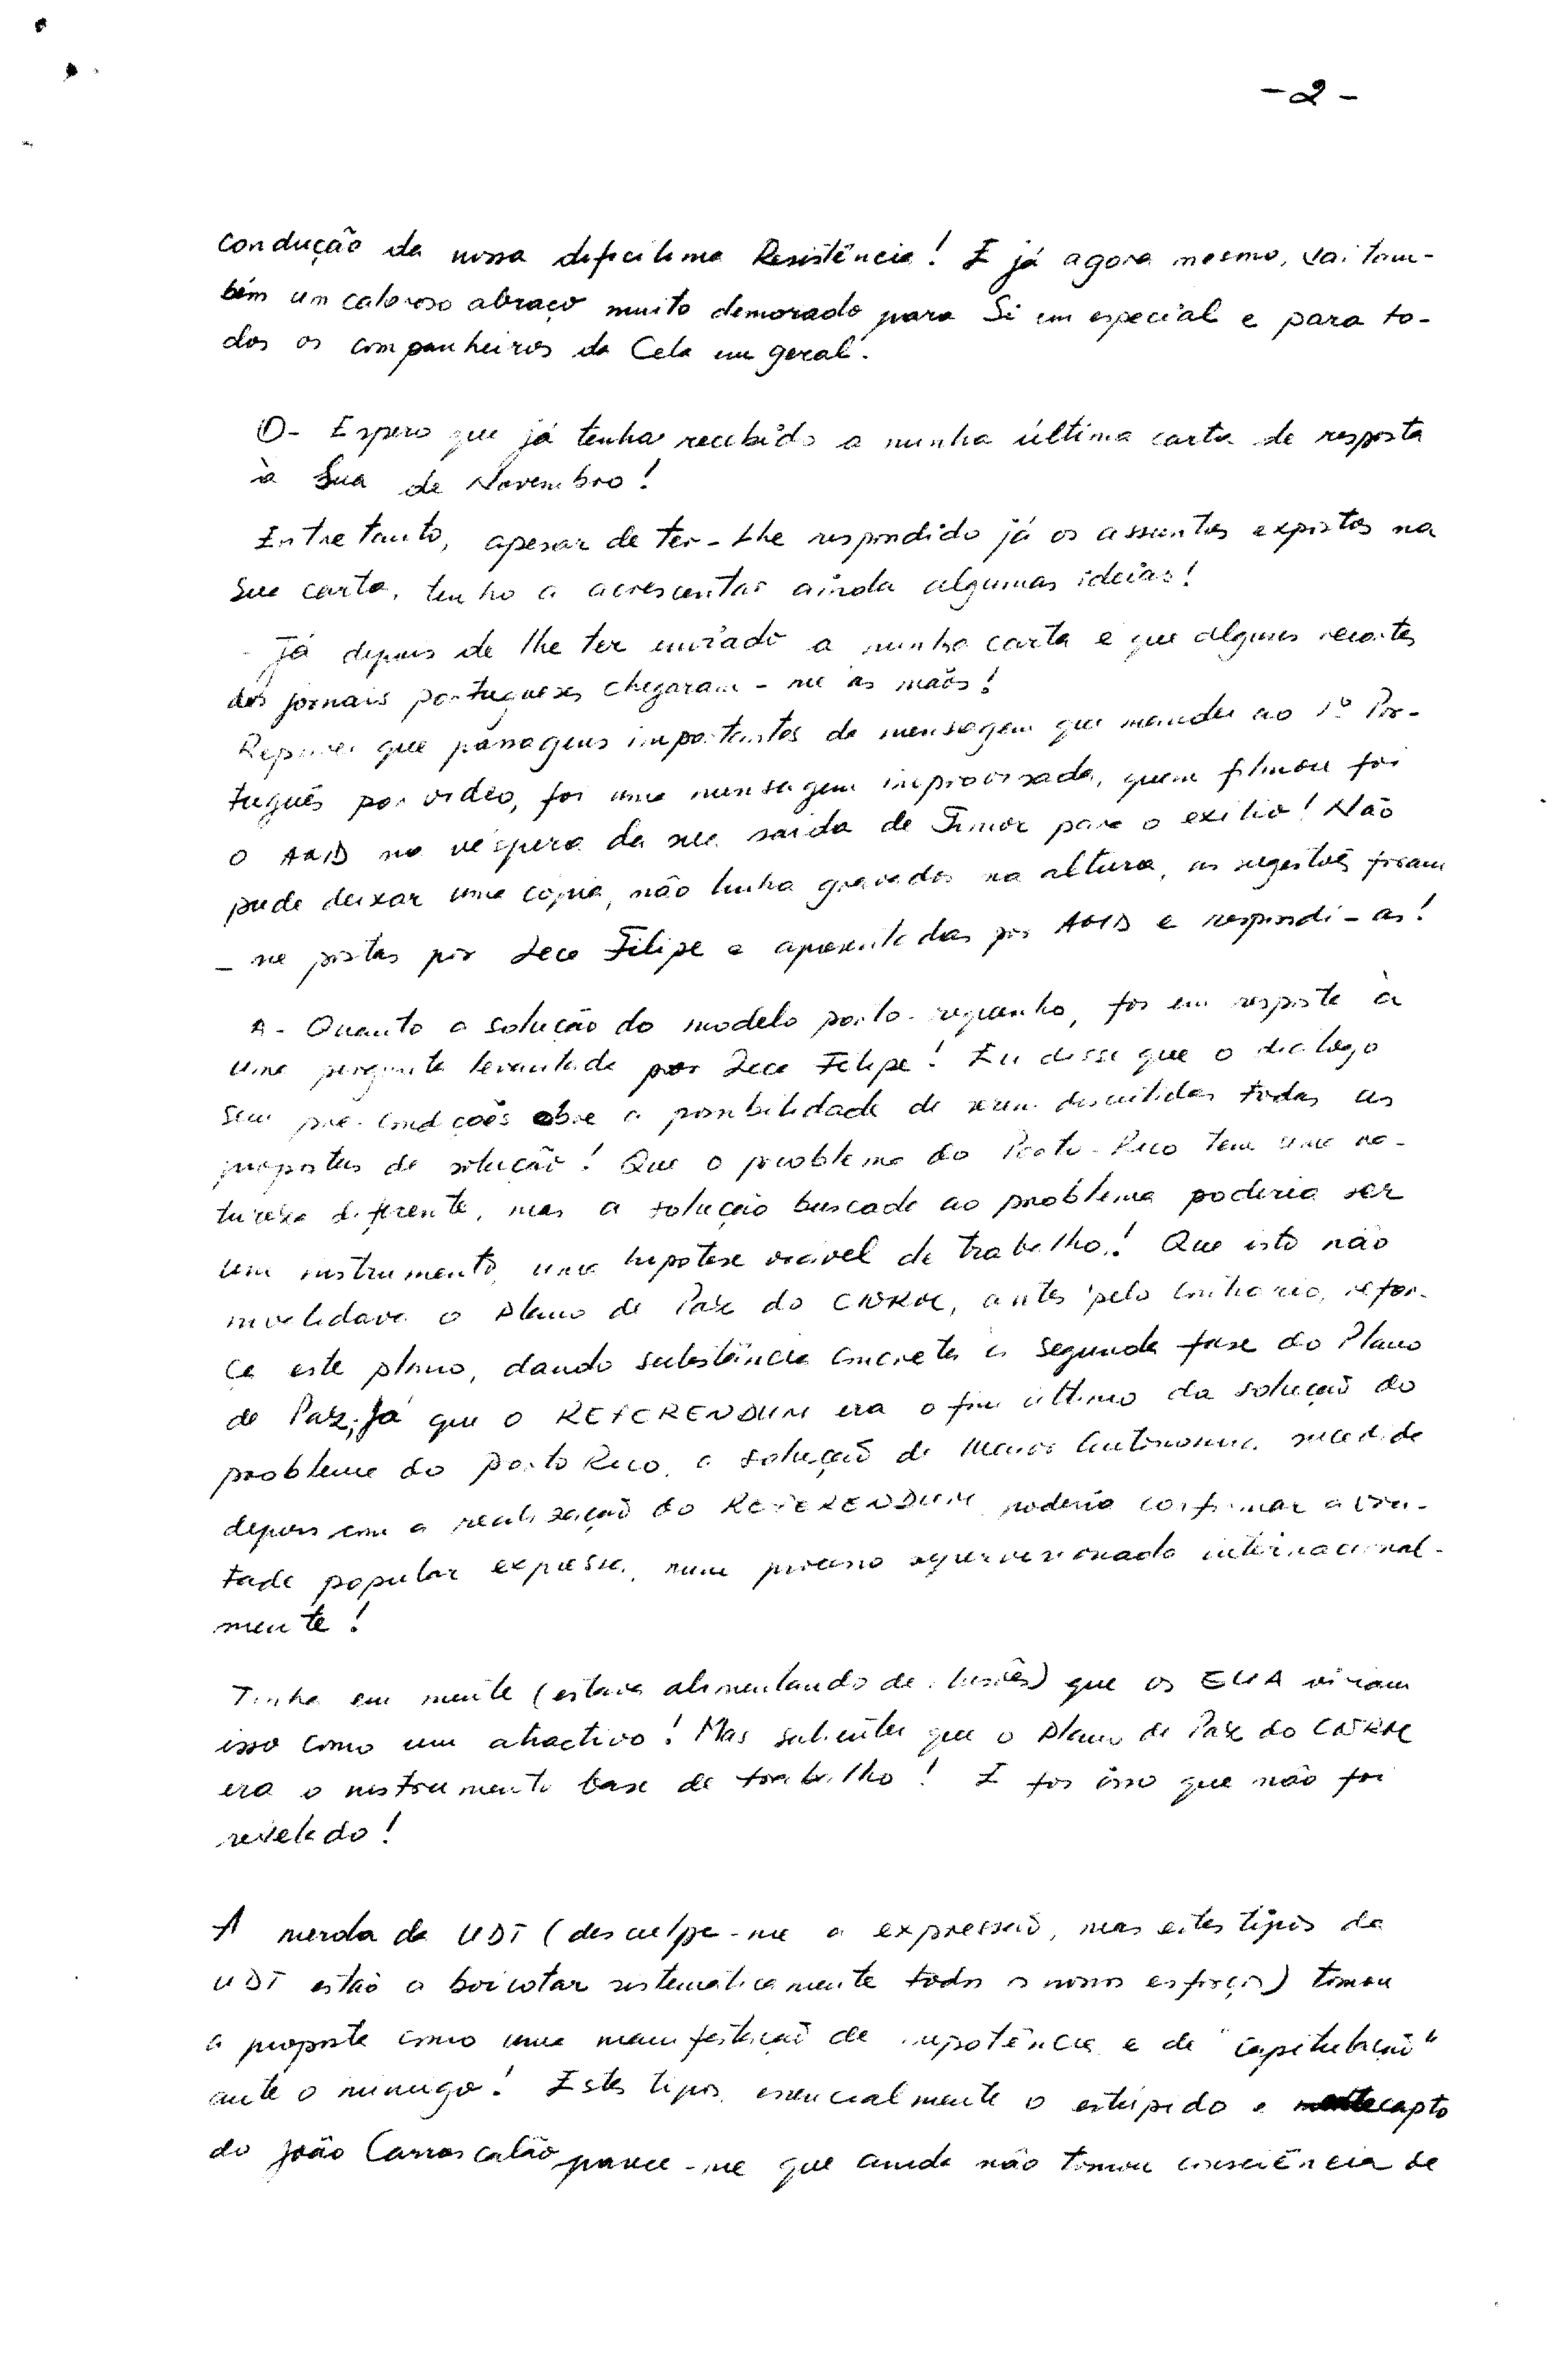 - 2 -
condução da nossa dificílima Resistência! E já agora mesmo, vai tam-
bém um caloroso abraço muito demorado para Si em especial e para to-
dos os companheiros da Cela em geral.
①- Espero que já tenha recebido a minha última carta de resposta
à Sua de Novembro!
Entretanto, apesar de ter-Lhe respondido já os assuntos expostos na
Sua carta, tenho a acrescentar ainda algumas ideias!
- Já depois de lhe ter enviado a minha carta é que alguns recortes
dos jornais portugueses chegaram-me às mãos!
Reparei que passagens importantes da mensagem que mandei ao 1º Por-
tuguês por vídeo, foi uma mensagem improvisada, quem filmou foi
o na véspera da sua saída de Timor para o exílio! Não
pude deixar uma cópia, não tinha gravador na altura, as sugestões foram
-me postas por Zeca Filipe e apresentadas por e respondi-as!
A- Quanto a solução do modelo porto-riquenho, foi em resposta à
uma pergunta levantada por Zeca Filipe! Eu disse que o diálogo
sem pré-condições abre a possibilidade de serem discutidas todas as
propostas de solução! Que o problema do Porto-Rico tem uma na-
tureza diferente, mas a solução buscada ao problema poderia ser
um instrumento, uma hipótese viável de trabalho! Que isto não
invalidava o Plano de Paz do CNRM, antes pelo contrário, refor-
ça este plano, dando substância concreta à segunda fase do Plano
de Paz; Já que o REFERENDUM era o fim último da solução do
problema do Porto Rico, a solução de Maior Autonomia sucedida
depois com a realização do REFERENDUM poderia confirmar a von-
tade popular expressa, num processo supervisionado internacional-
mente!
Tinha em mente (estava alimentando de ilusões) que os EUA viriam
isso como um atractivo! Mas salientei que o Plano de Paz do CNRM
era o instrumento base de trabalho! E foi isso que não foi
revelado!
A merda da UDT (desculpe-me a expressão, mas estes tipos da
UDT estão a boicotar sistematicamente todos os nossos esforços) tomou
a proposta como uma manifestação de impotência e de "capitulação"
ante o inimigo! Estes tipos, essencialmente o estúpido e mentecapto
do João Carrascalão parece-me que ainda não tomou consciência de